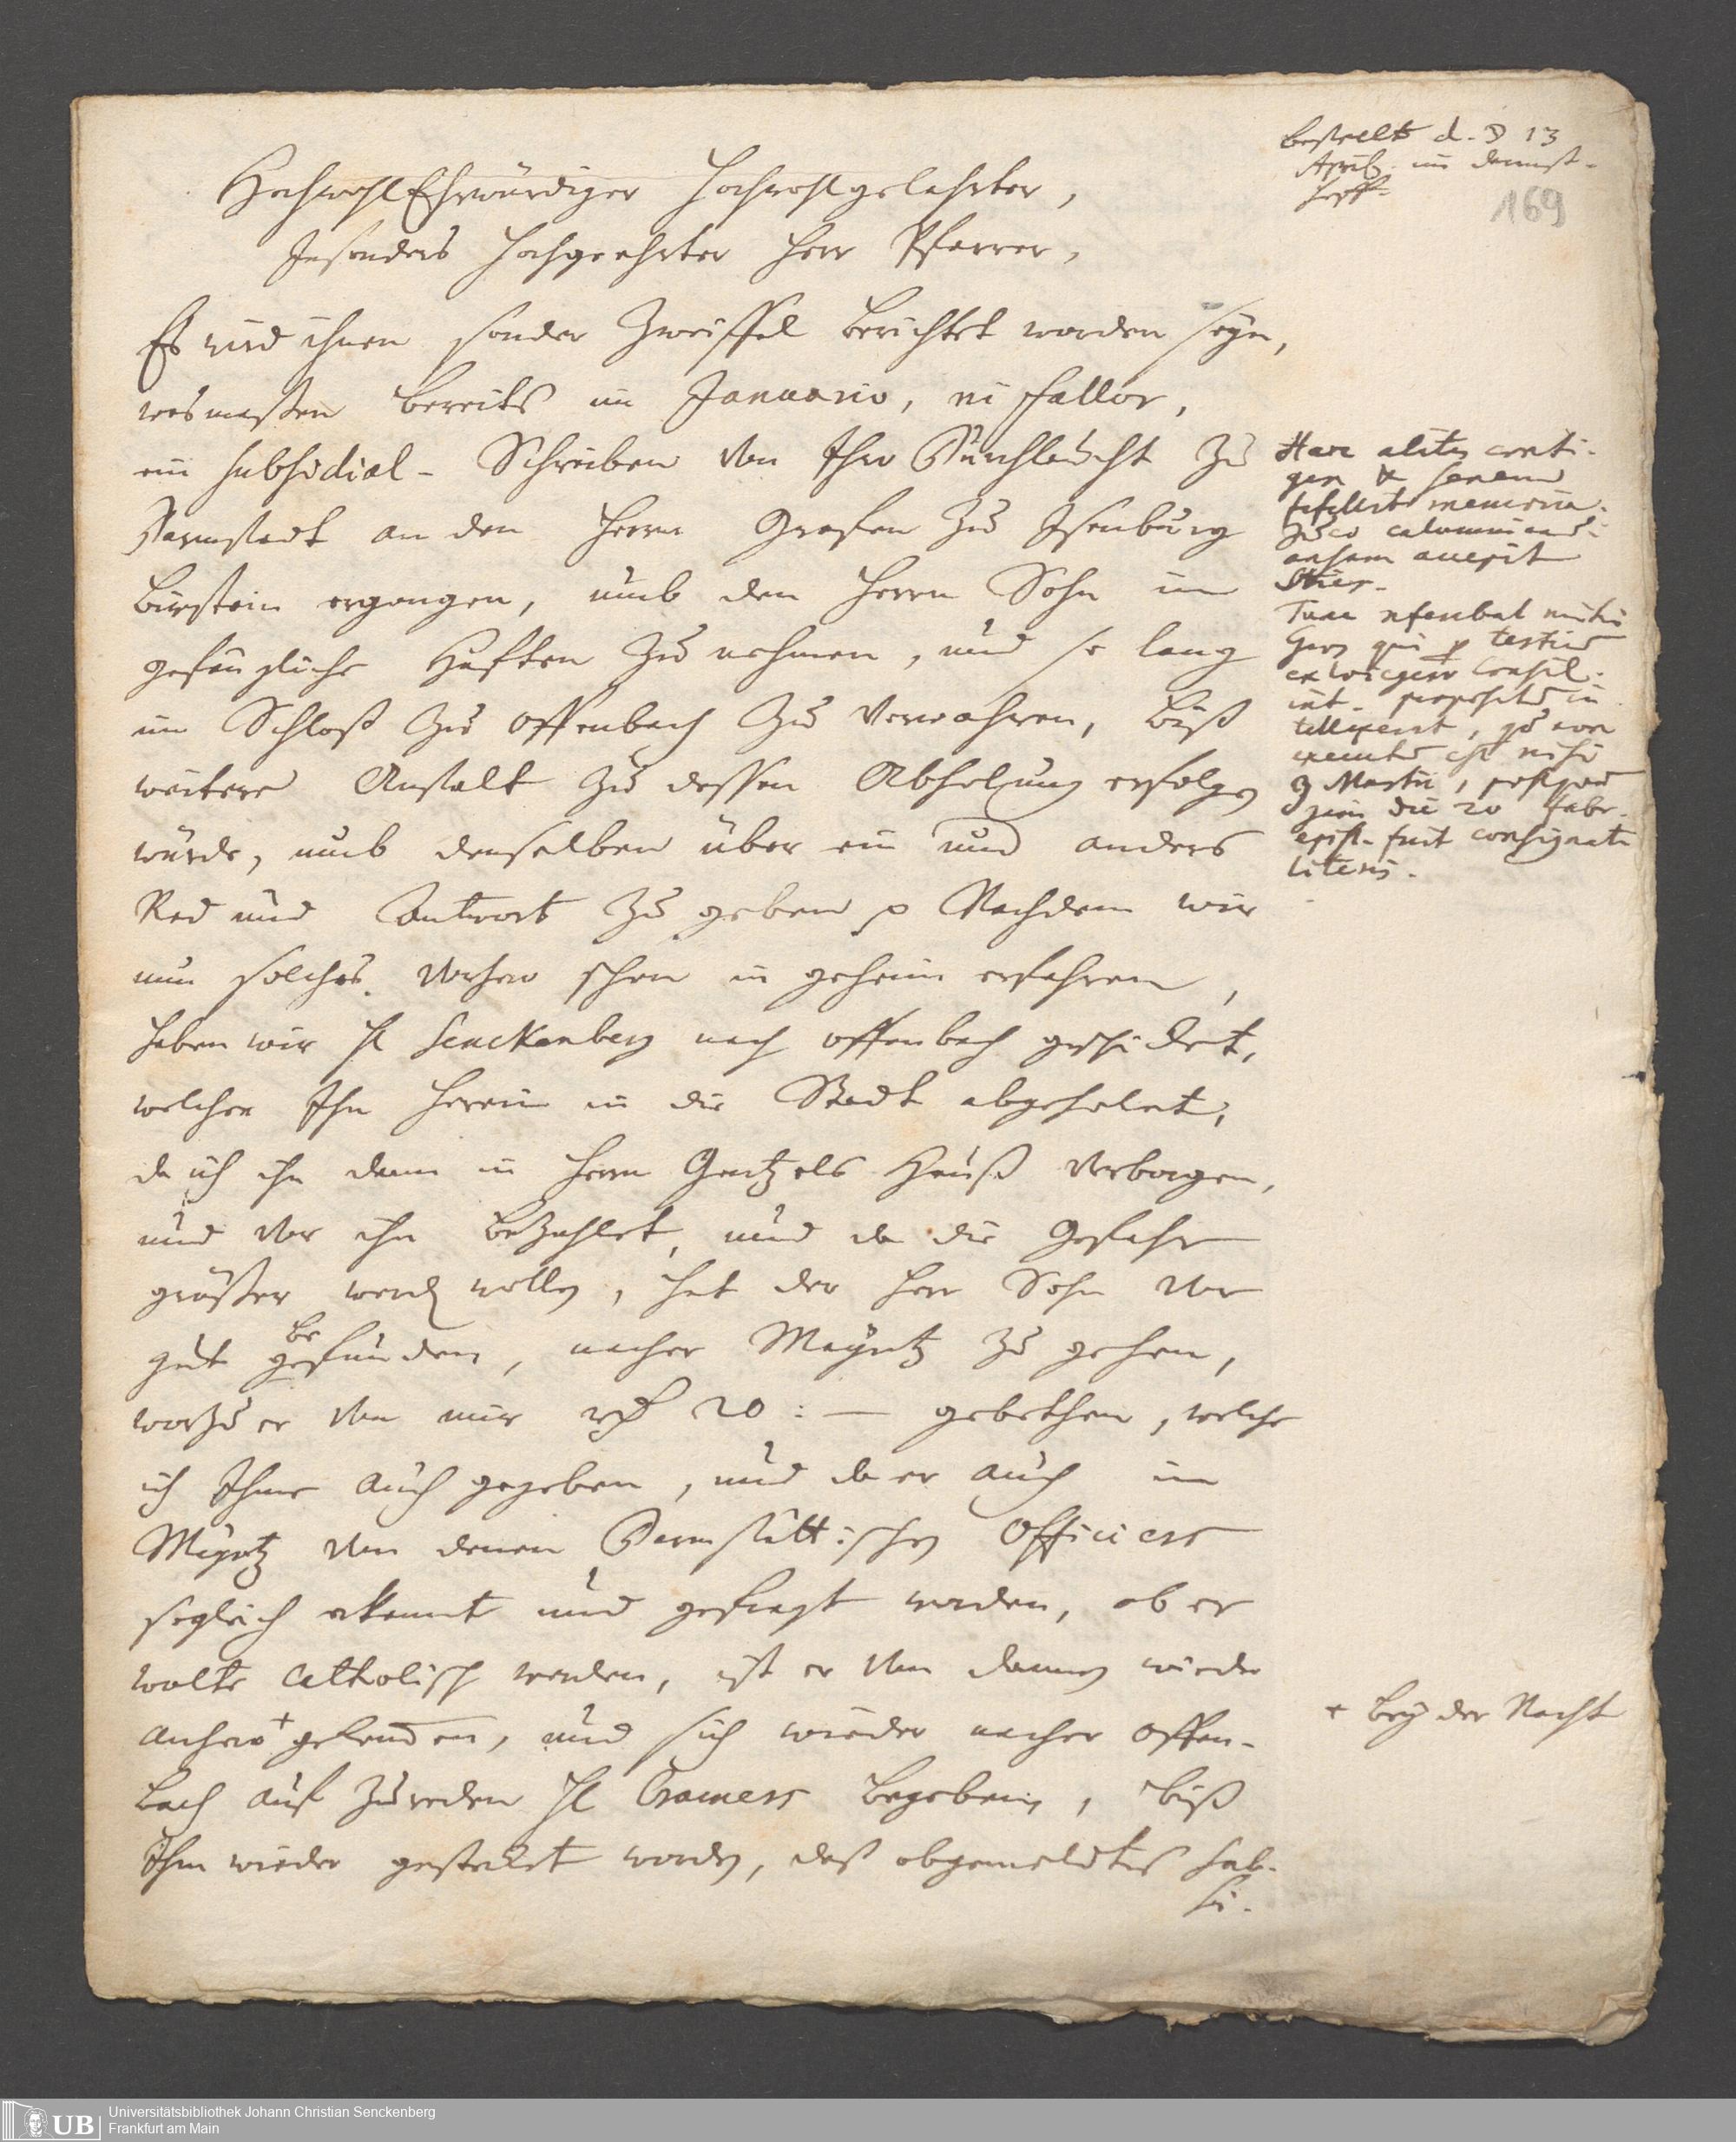 bestellt d. 13
April. im Darmst-
hoff.
169
HochwohlEhrwürdiger Hochwohlgelahrter,
Insonders Hochgeehrter Herr Pfarrer,
Es wird ihnen sonder Zweiffel berichtet worden seyn,
wesmassen bereits im Januario, ni fallor,
ein subsidial- Schreiben von Ihro Durchlaucht zu
Darmstadt an den Herrn Grafen zu Isenburg
Birstein ergangen, umb den Herrn Sohn in
gefängliche Hafften zu nehmen, und so lang
im Schloß zu Offenbach zu verwahren, biß
weitere Anstalt zu dessen Abholung erfolgen
würde, umb denselben über ein und anders
Red und Antwort zu geben p Nachdem wir
nun solches vorhero schon in geheim erfahren,
haben wir H Senckenberg nach Offenbach geschicket,
welcher Ihn herein in die Stadt abgeholet,
da ich ihn dann in Herrn Hauß verborgen,
und vor ihn bezahlet, und da die Gefahr
größer werden wollen, hat der Herr Sohn vor
gut befunden, nacher Mayntz zu gehen,
worzu er von mir 20 : — gebethen, welche
ich Ihme auch gegeben, und da er auch in
Mayntz von denen Darmstättischen Officiers
sogleich erkannt und gefragt worden, ob er
wolte Catholisch werden, ist er von dannen wieder
anhero + gekommen, und sich wieder nacher Offen-
bach auf zureden H Cramers begeben, biß
Ihm wieder gestecket worden, daß obgemeldtes sub-
si-
Haec aliter conti-
gere & senem
fefellit memoria.
calumniand:
ansam arripit
Tunc referebat mihi
qui
consil.
int. proposito in
tellexerit,
est nisi
9 Martii, postquam
jam die 20 Febr.
epist. fuit consignata
literis.
+ bey der Nacht
Universitätsbibliothek Johann Christian Senckenberg
Frankfurt am Main
UB